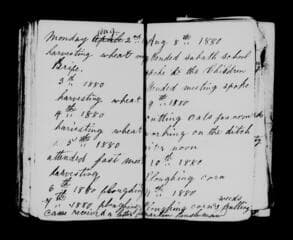 Monday Aug 2nd
harvesting wheat
3th 1880
harvesting wheat
4th 1880
harvesting wheat
5th 1880
attended fast meet
harvesting
6th 1880 ploughing
7th 1880 ploughing
came received a letter
Aug 8th 1880
tended sabath school
spoke to the Children
tended meeting spoke
9th 1880
cutting Oats for
working on the ditch
noon
10th 1880
Ploughing corn
11th 1880
weeds
Ploughing corn & Cutting